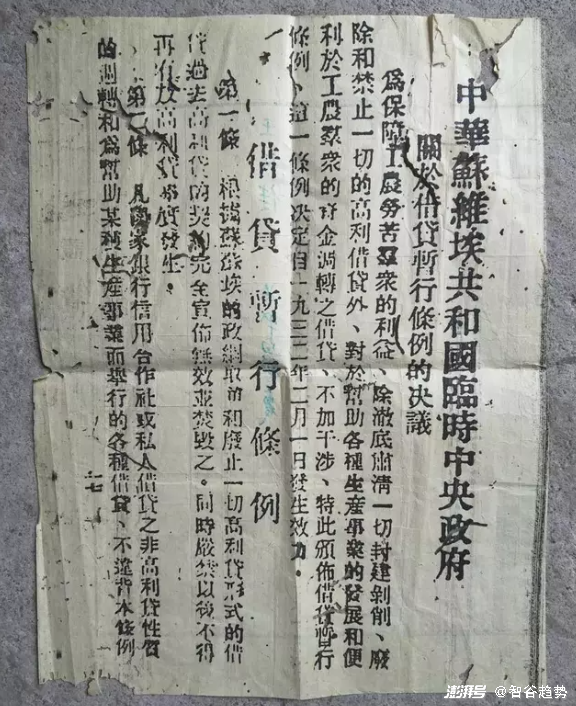 中華蘇維埃共和國臨時中央政府
關於借貸暫行條例的决議
爲保障工農勞苦羣衆的利益、除澈底肅清一切封建剝削、廢
除和禁止一切的高利借貸外、對於幫助各種生產事業的發展和便
利於工農羣衆的資金週轉之借貸、不加干涉、特此頒佈借貸暫行
條例、這一條例决定自一九三二年二月一日發生效力。
借貸暫行條例
第一條 根據蘇維埃的政綱取消和廢止一切高利貸形式的借
貸過去高利貸的契約完全宣佈無效並焚毀之。同時嚴禁以後不得
再有放高利貸事度發生。
第二條 凡國家銀行信用合作社或私人借貸之非高利貸性質
的週轉和爲幫助某種生產事業而舉行的各種借貸、不違背本條例
十七
澎湃号 @智谷趋势